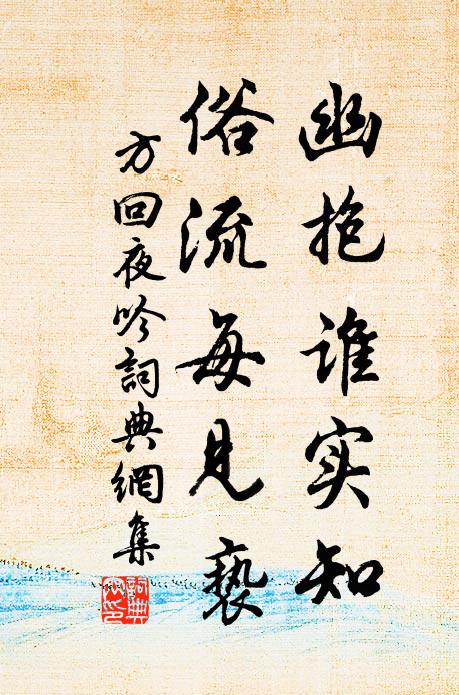 幽抱谁实知
俗流每见亵
方回夜吟詞典網集